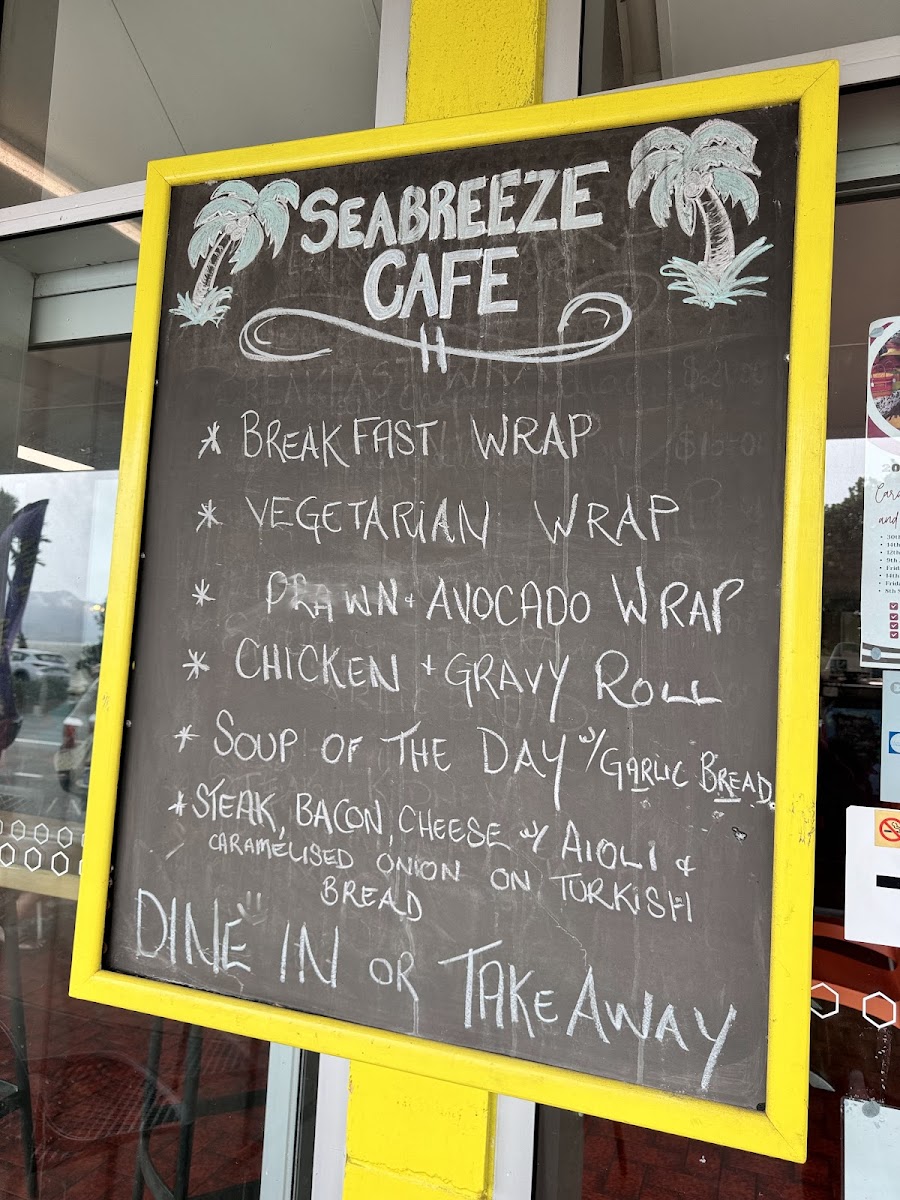 SEABREEZE
CAFE
* BREAKFAST WRAP
* VEGETARIAN WRAP
* PRAWN + AVOCADO WRAP
* CHICKEN + GRAVY ROLL
* SOUP OF THE DAY w/ GARLIC BREAD
* STEAK, BACON, CHEESE w/ AIOLI &
CARAMELISED ONION ON TURKISH
BREAD
DINE IN OR TAKE AWAY